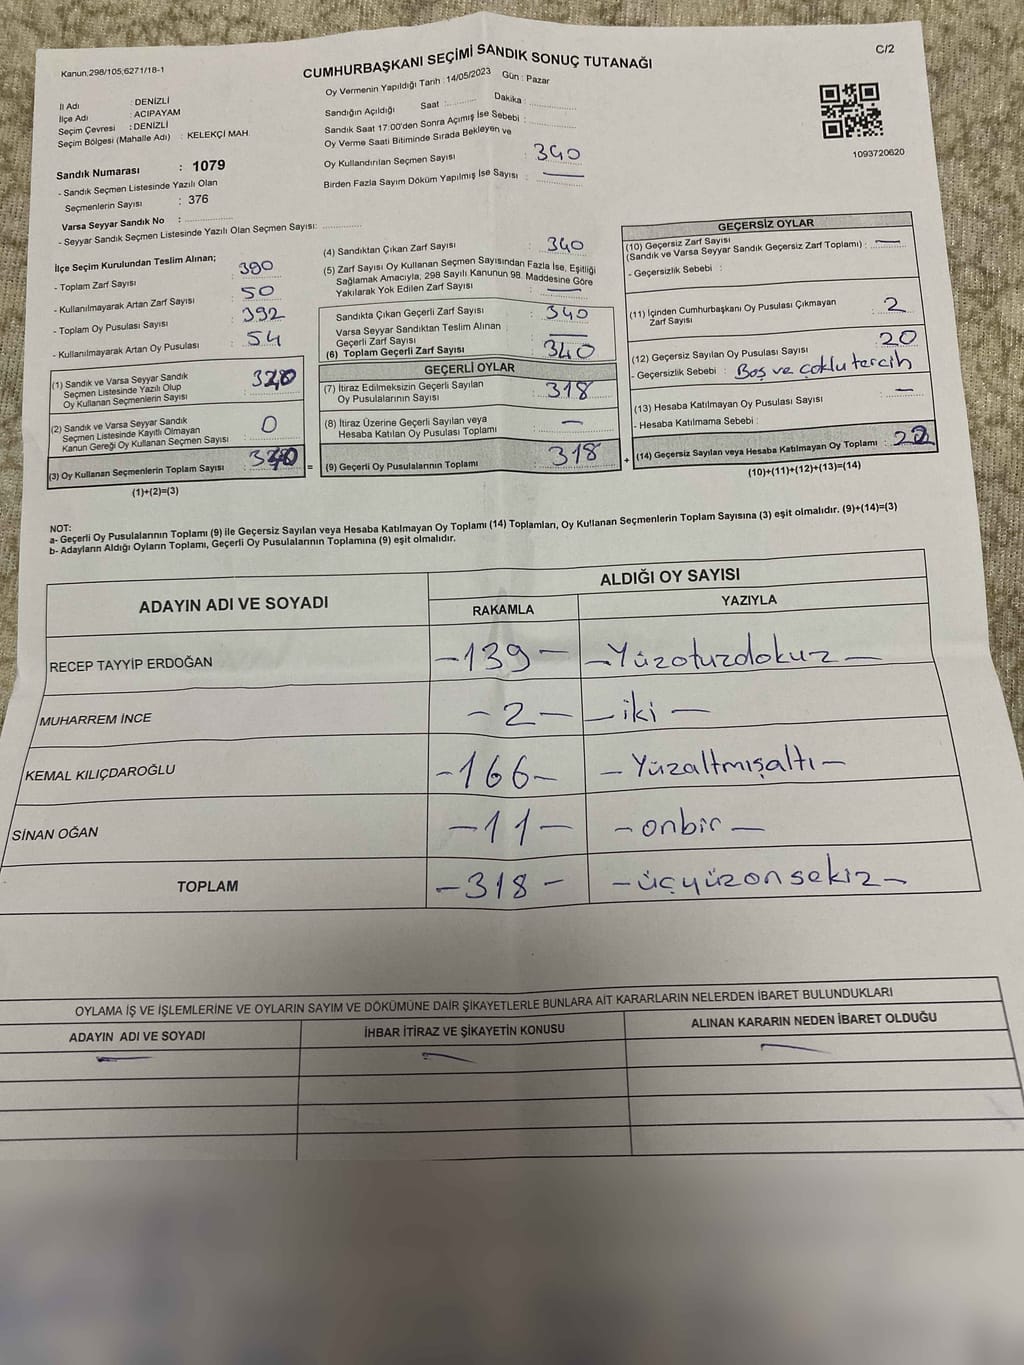 Kanun,298/105,6271/18-1
C/2
CUMHURBAŞKANI SEÇİMİ SANDIK SONUÇ TUTANAĞI
İl Adı : DENİZLİ
İlçe Adı : ACIPAYAM
Seçim Çevresi : DENİZLİ
Seçim Bölgesi (Mahalle Adı) : KELEKÇİ MAH.
Sandık Numarası : 1079
- Sandık Seçmen Listesinde Yazılı Olan
Seçmenlerin Sayısı : 376
Varsa Seyyar Sandık No :
- Seyyar Sandık Seçmen Listesinde Yazılı Olan Seçmen Sayısı:
Oy Vermenin Yapıldığı Tarih : 14/05/2023 Gün : Pazar
Sandığın Açıldığı Saat : Dakika :
Sandık Saat 17:00'den Sonra Açımış İse Sebebi :
Oy Verme Saati Bitiminde Sırada Bekleyen ve
Oy Kullandırılan Seçmen Sayısı : 340
Birden Fazla Sayım Döküm Yapılmış İse Sayısı : —
1093720620
İlçe Seçim Kurulundan Teslim Alınan;
- Toplam Zarf Sayısı : 390
- Kullanılmayarak Artan Zarf Sayısı : 50
- Toplam Oy Pusulası Sayısı : 392
- Kullanılmayarak Artan Oy Pusulası : 54
(1) Sandık ve Varsa Seyyar Sandık
Seçmen Listesinde Yazılı Olup
Oy Kullanan Seçmenlerin Sayısı
(2) Sandık ve Varsa Seyyar Sandık
Seçmen Listesinde Kayıtlı Olmayan
Kanun Gereği Oy Kullanan Seçmen Sayısı : 0
(3) Oy Kullanan Seçmenlerin Toplam Sayısı :
(1)+(2)=(3)
(4) Sandıktan Çıkan Zarf Sayısı : 340
(5) Zarf Sayısı Oy Kullanan Seçmen Sayısından Fazla İse, Eşitliği
Sağlamak Amacıyla, 298 Sayılı Kanunun 98. Maddesine Göre
Yakılarak Yok Edilen Zarf Sayısı : —
Sandıkta Çıkan Geçerli Zarf Sayısı : 340
Varsa Seyyar Sandıktan Teslim Alınan
Geçerli Zarf Sayısı : —
(6) Toplam Geçerli Zarf Sayısı : 340
GEÇERLİ OYLAR
(7) İtiraz Edilmeksizin Geçerli Sayılan
Oy Pusulalarının Sayısı : 318
(8) İtiraz Üzerine Geçerli Sayılan veya
Hesaba Katılan Oy Pusulası Toplamı : —
= (9) Geçerli Oy Pusulalarının Toplamı : 318 +
GEÇERSİZ OYLAR
(10) Geçersiz Zarf Sayısı
(Sandık ve Varsa Seyyar Sandık Geçersiz Zarf Toplamı) : —
- Geçersizlik Sebebi :
(11) İçinden Cumhurbaşkanı Oy Pusulası Çıkmayan
Zarf Sayısı : 2
(12) Geçersiz Sayılan Oy Pusulası Sayısı : 20
- Geçersizlik Sebebi : Boş ve çoklu tercih
(13) Hesaba Katılmayan Oy Pusulası Sayısı : —
- Hesaba Katılmama Sebebi :
(14) Geçersiz Sayılan veya Hesaba Katılmayan Oy Toplamı : 22
(10)+(11)+(12)+(13)=(14)
NOT:
a- Geçerli Oy Pusulalarının Toplamı (9) ile Geçersiz Sayılan veya Hesaba Katılmayan Oy Toplamı (14) Toplamları, Oy Kullanan Seçmenlerin Toplam Sayısına (3) eşit olmalıdır. (9)+(14)=(3)
b- Adayların Aldığı Oyların Toplamı, Geçerli Oy Pusulalarının Toplamına (9) eşit olmalıdır.
ADAYIN ADI VE SOYADI ALDIĞI OY SAYISI
RAKAMLA YAZIYLA
RECEP TAYYİP ERDOĞAN -139- -Yüzotuzdokuz-
MUHARREM İNCE -2- -iki-
KEMAL KILIÇDAROĞLU -166- -Yüzaltmışaltı-
SİNAN OĞAN -11- -onbir-
TOPLAM -318- -üçyüzonsekiz-
OYLAMA İŞ VE İŞLEMLERİNE VE OYLARIN SAYIM VE DÖKÜMÜNE DAİR ŞİKAYETLERLE BUNLARA AİT KARARLARIN NELERDEN İBARET BULUNDUKLARI
ADAYIN ADI VE SOYADI İHBAR İTİRAZ VE ŞİKAYETİN KONUSU ALINAN KARARIN NEDEN İBARET OLDUĞU
— — —